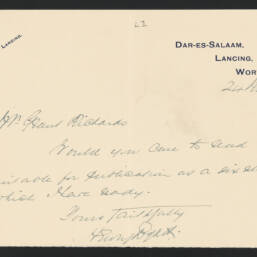 Lancing.
Dar-es-Salaam,
Lancing,
Wor
Mr Grant Richards
Would you care to read
suitable for publication as a six
which I have ready.
Yours faithfully